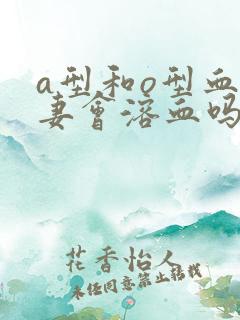 a型和o型血
妻会溶血吗
花香怡人
未经同意禁止转载